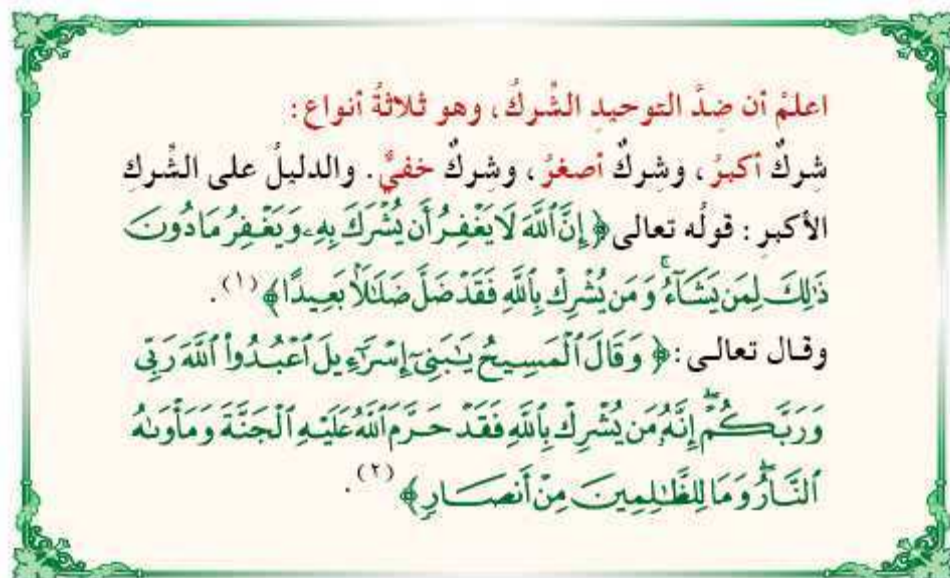 اعلمْ أن ضِدَّ التوحيدِ الشِّركُ، وهو ثلاثةُ أنواع:
شركٌ أكبرُ، وشركٌ أصغرُ، وشركٌ خفيٌّ. والدليلُ على الشِّركِ
الأكبرِ: قولُه تعالى ﴿إِنَّ ٱللَّهَ لَا يَغْفِرُ أَن يُشْرَكَ بِهِۦ وَيَغْفِرُ مَا دُونَ
ذَٰلِكَ لِمَن يَشَآءُ ۚ وَمَن يُشْرِكْ بِٱللَّهِ فَقَدْ ضَلَّ ضَلَٰلًۢا بَعِيدًا﴾ (١).
وقال تعالى: ﴿وَقَالَ ٱلْمَسِيحُ يَٰبَنِىٓ إِسْرَٰٓءِيلَ ٱعْبُدُوا۟ ٱللَّهَ رَبِّى
وَرَبَّكُمْ ۖ إِنَّهُۥ مَن يُشْرِكْ بِٱللَّهِ فَقَدْ حَرَّمَ ٱللَّهُ عَلَيْهِ ٱلْجَنَّةَ وَمَأْوَىٰهُ
ٱلنَّارُ ۖ وَمَا لِلظَّٰلِمِينَ مِنْ أَنصَارٍ﴾ (٢).